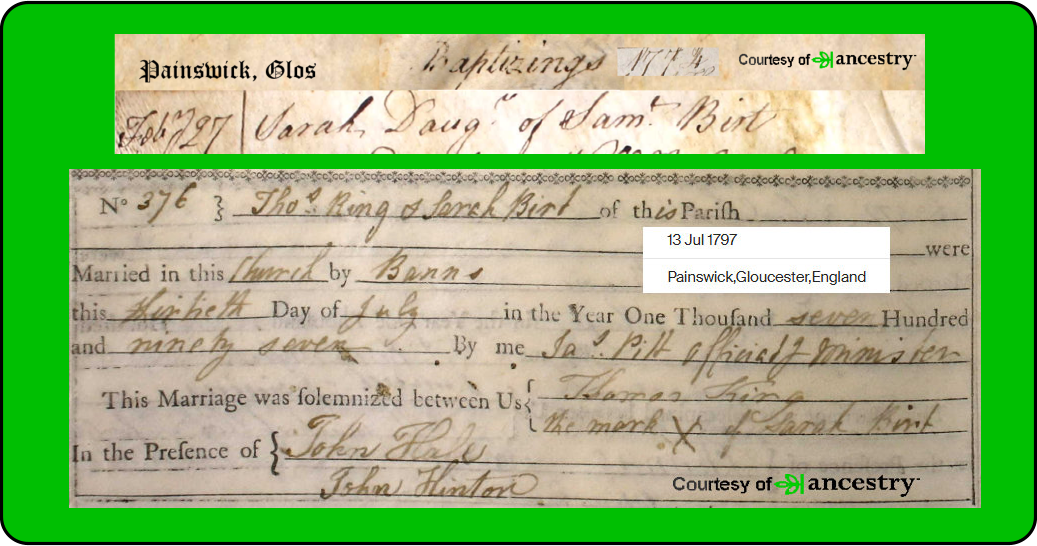 Painswick, Glos Baptizings 1774 Courtesy of ancestry
Febry 27 Sarah Daugr of Saml Birt
No 376 } Thos King & Sarah Birt of this Parish
13 Jul 1797
were
Painswick,Gloucester,England
Married in this Church by Banns
this Thirtieth Day of July in the Year One Thousand seven Hundred
and ninety seven By me Jas Pitt officiatg Minister
This Marriage was solemnized between Us { Thomas King
the mark X of Sarah Birt
In the Presence of { John Hale
John Hinton
Courtesy of ancestry